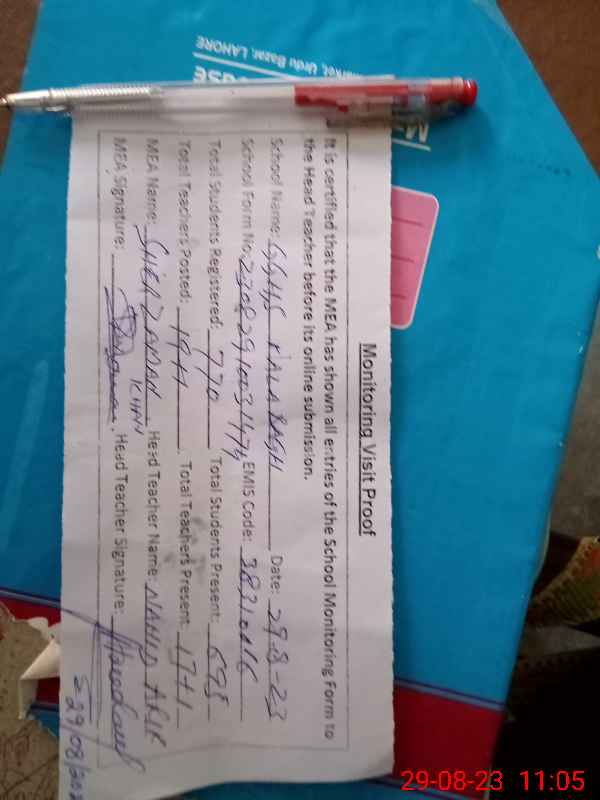 Market, Urdu Bazar, LAHORE
Monitoring Visit Proof
It is certified that the MEA has shown all entries of the School Monitoring Form to
the Head Teacher before its online submission.
School Name: GGHS KALA BAGH Date: 29-8-23
School Form No: EMIS Code: 38310016
Total Students Registered: 770 Total Students Present: 698
Total Teachers Posted: 19+1 Total Teachers Present: 17+1
MEA Name: SHER ZAMAN KHAN, Head Teacher Name: NAHID
MEA Signature: , Head Teacher Signature:
29-08-23 11:05